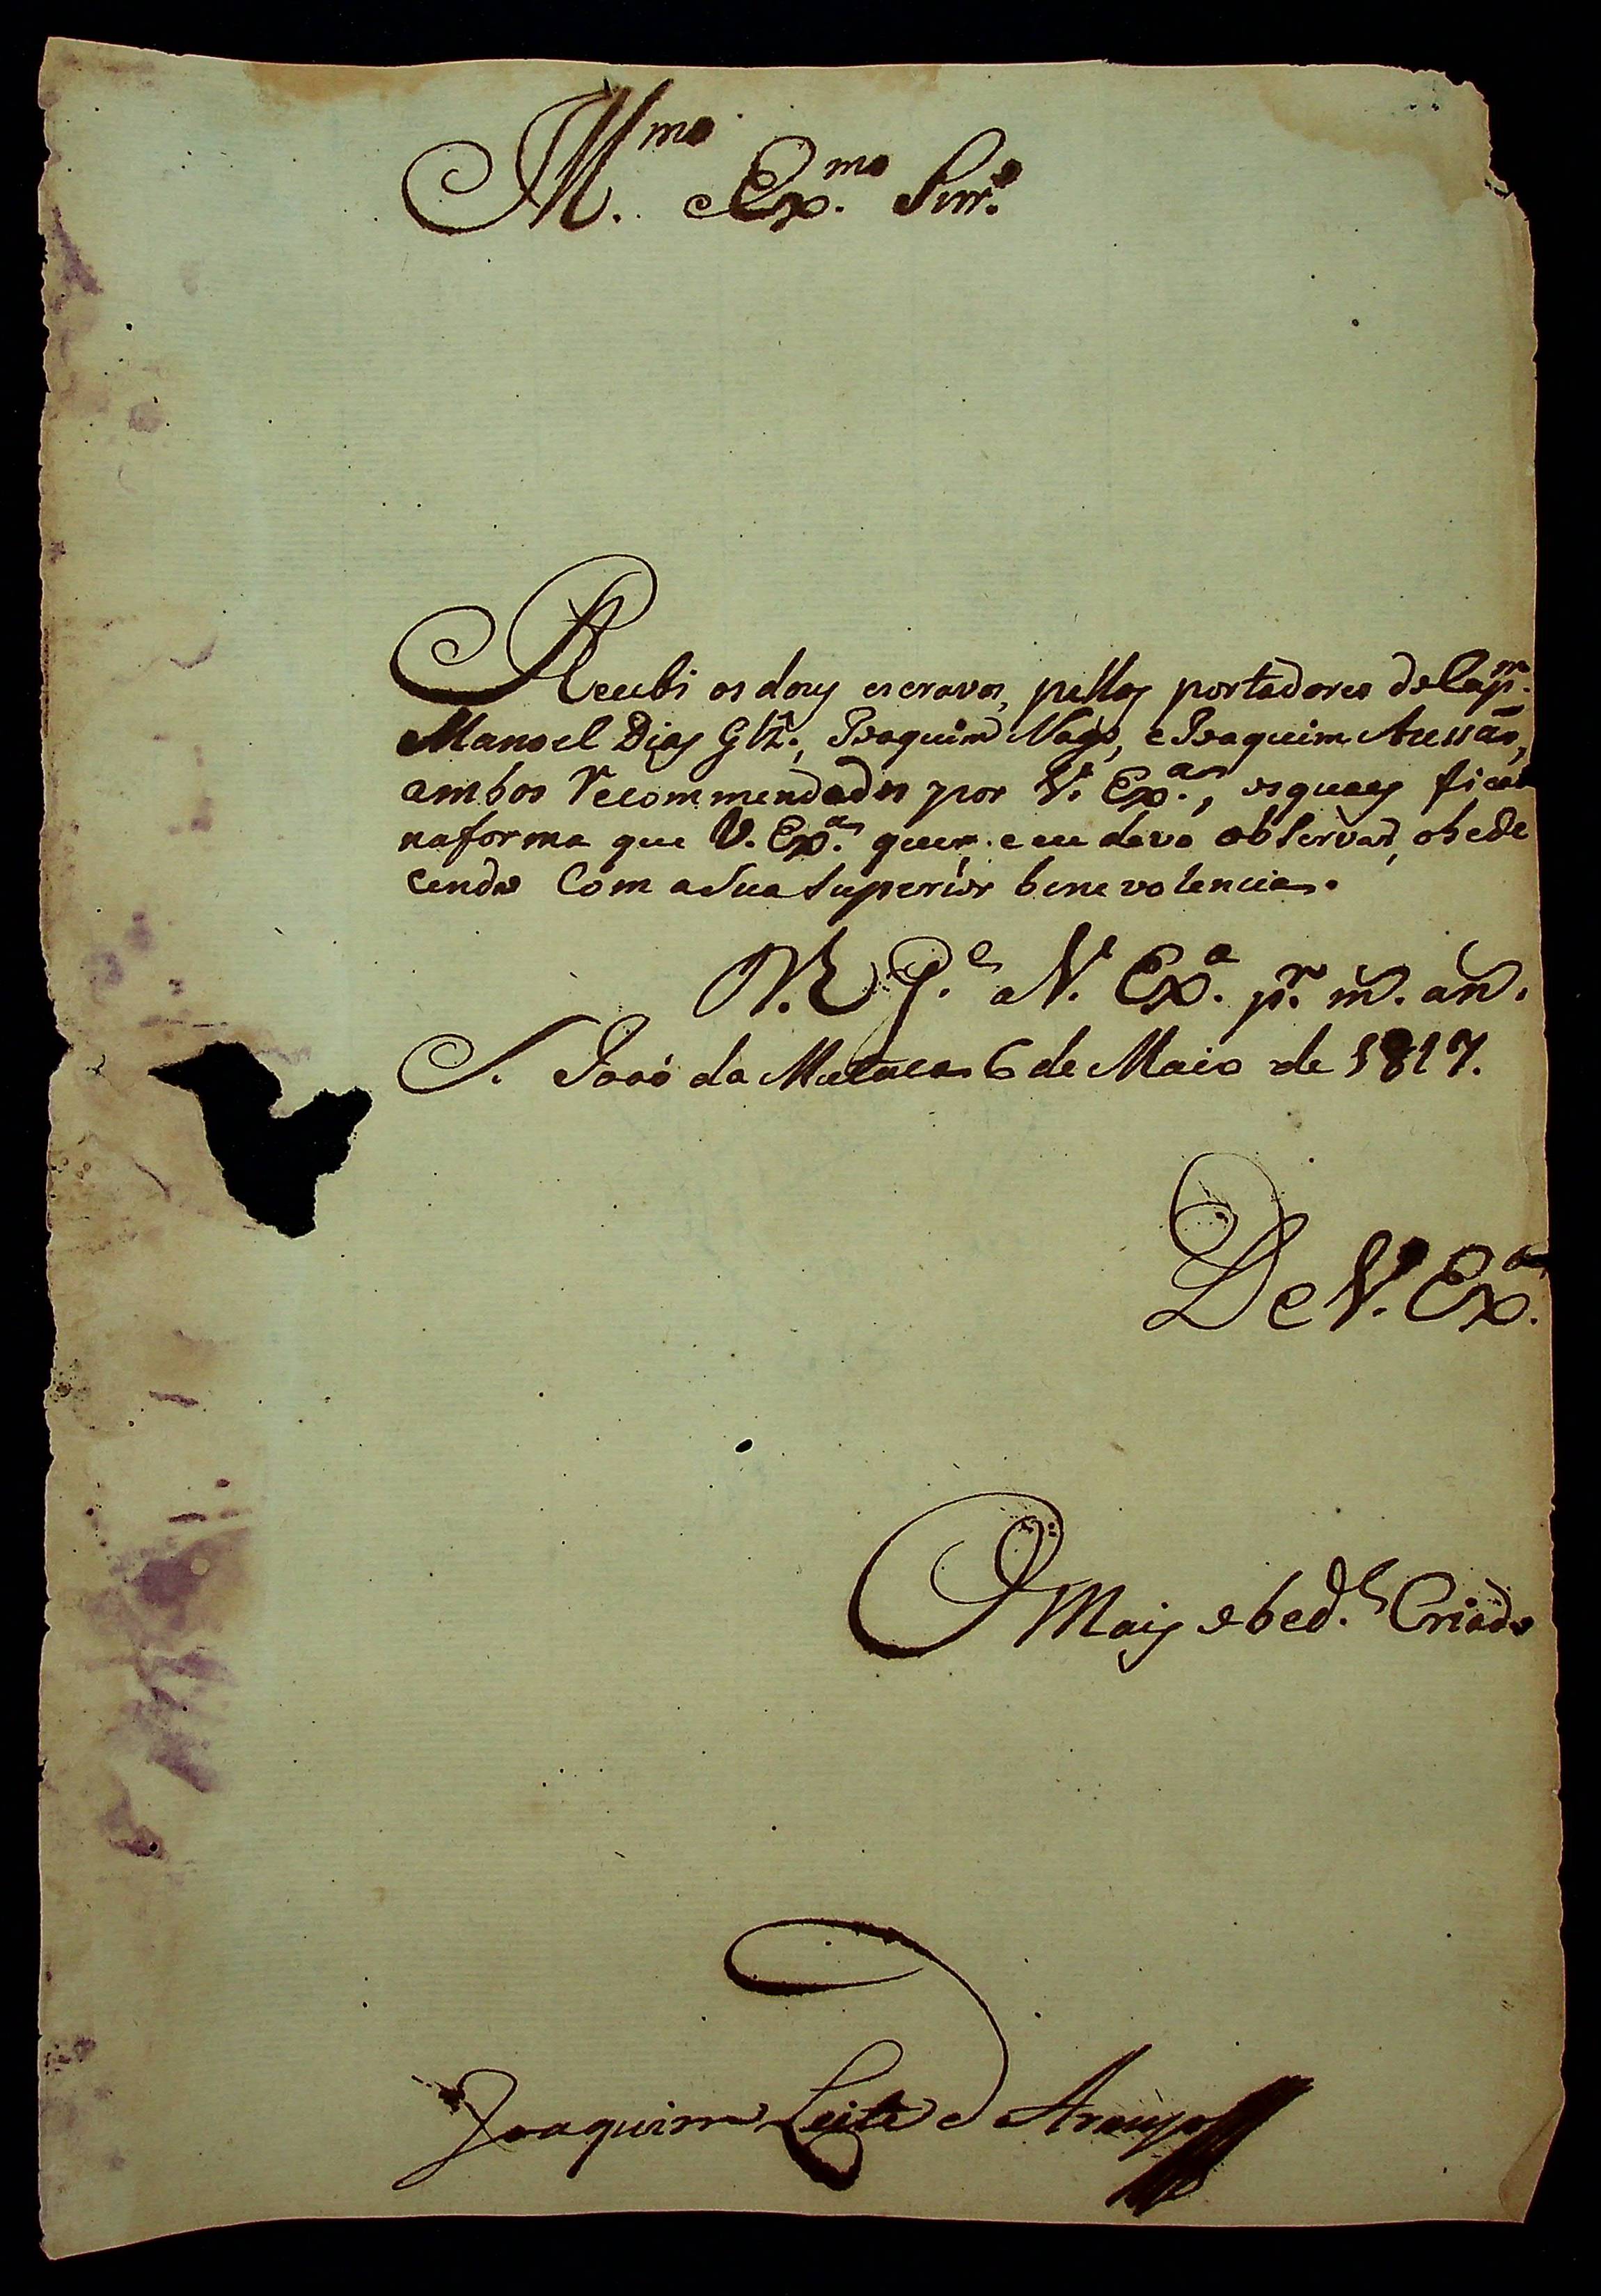 Ill.mo Ex.mo Snr.
Recebi os dous escravos, pellos portadores do Cap.m
Manoel Dias Glz., Joaquim Nagô, e Joaquim Aussá,
ambos recommendados por V. Ex.a, os quaes ficaõ
na forma que V. Ex.a quer, e eu devo observar, obede
cendo Com a Sua Superior benevolencia.
N. S. G.e a V. Ex.a p.r m.s an.s
S. João da 6 de Maio de 1817.
De V. Ex.a
O Mais obed.e Criado
Joaquim Leite Araujo